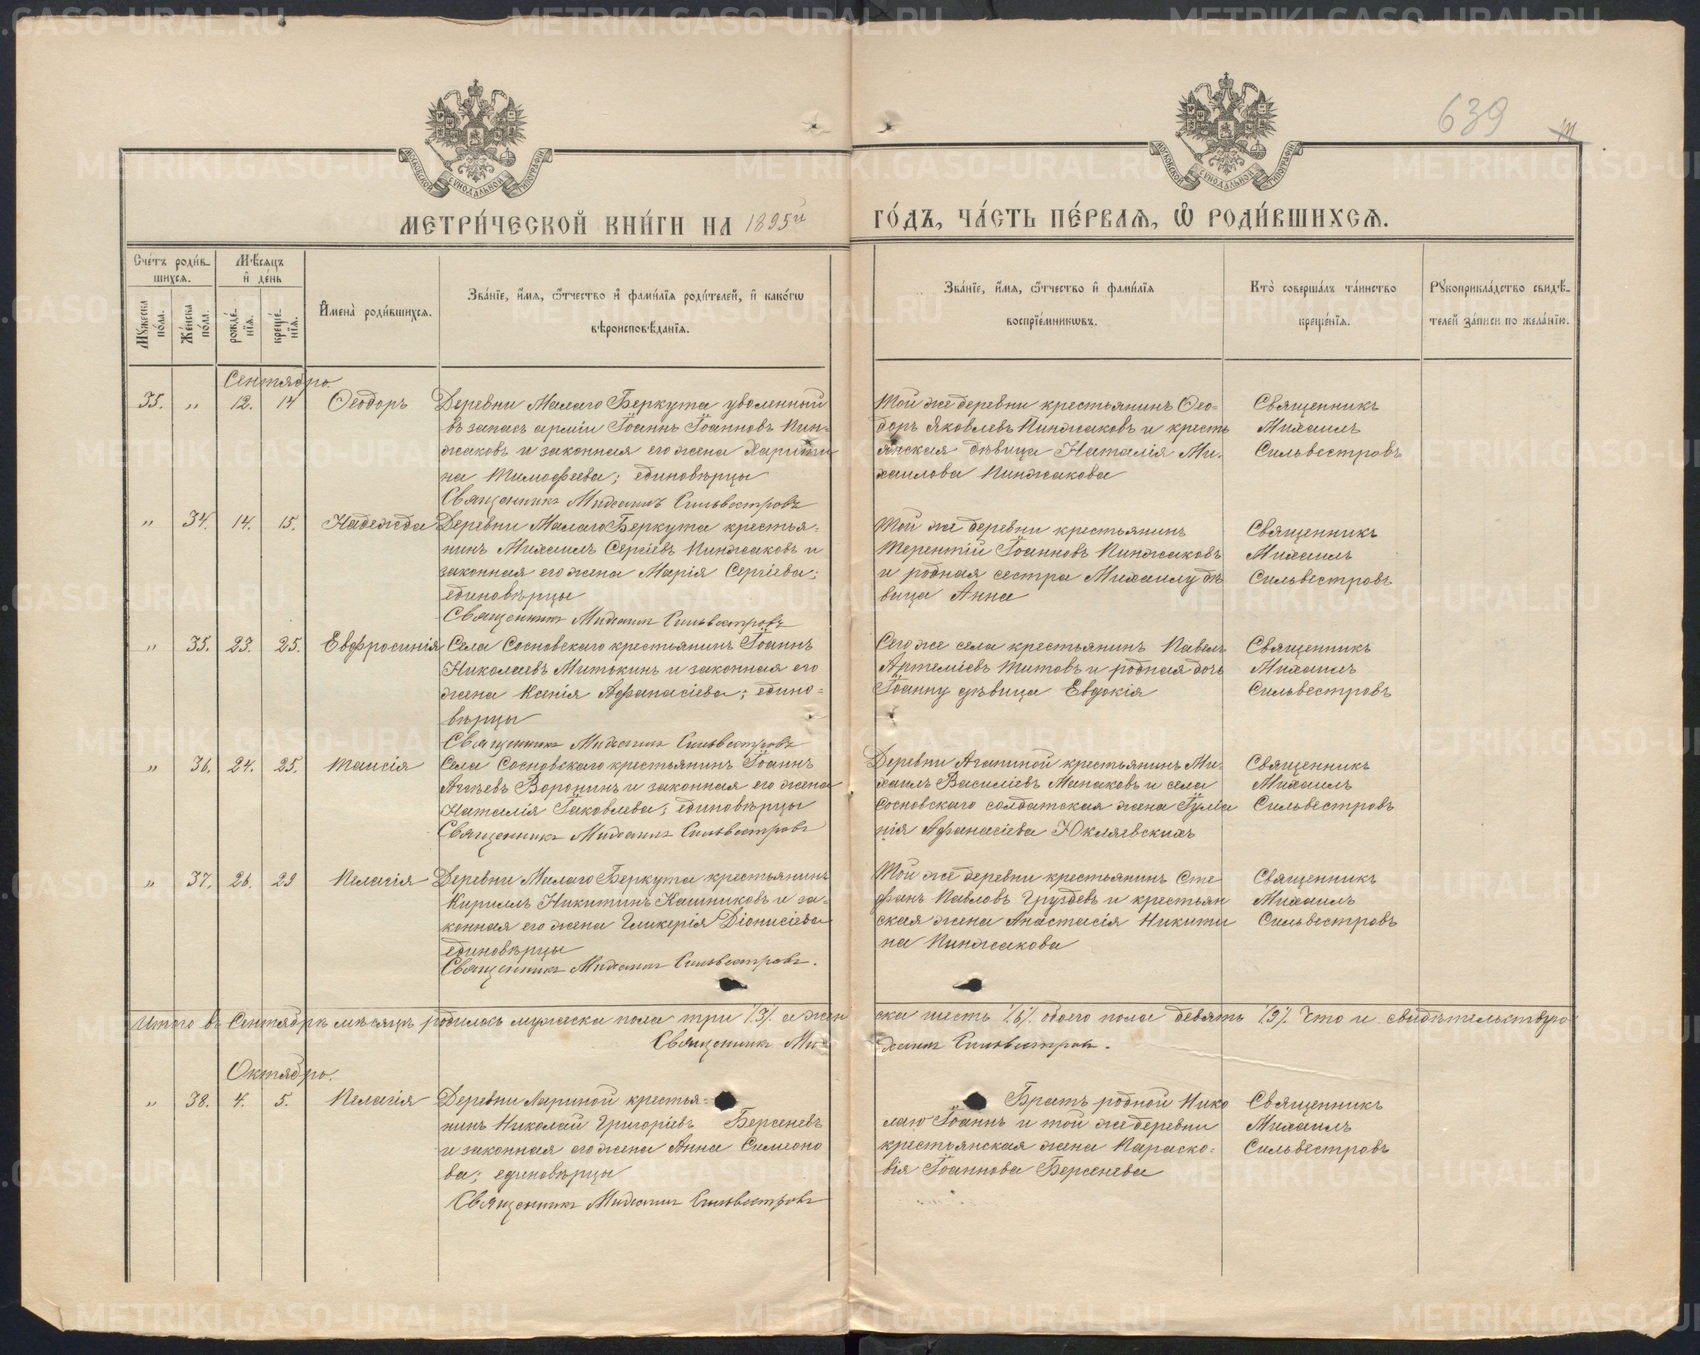 639
МЕТРИ́ЧЕСКОЙ КНИ́ГИ НА 1895й ГО́ДЪ, ЧА́СТЬ ПЕ́РВАѦ, Ѡ҆ РОДИ́ВШИХСѦ.
Сче́тъ роди́вшихсѧ.
Мѣ́сѧцъ и҆ де́нь
Мꙋ́жеска по́ла.
Же́нска по́ла.
рожде́нїѧ.
креще́нїѧ.
И҆мена̀ роди́вшихсѧ.
Зва́нїе, и҆́мѧ, ѻ҆́тчество и҆ фами́лїѧ роди́телей, и҆ како́гѡ
вѣроисповѣ́данїѧ.
Зва́нїе, и҆́мѧ, ѻ҆́тчество и҆ фами́лїѧ
воспрїе́мникѡвъ.
Кто̀ соверша́лъ та́инство
креще́нїѧ.
Рꙋкоприкла́дство свидѣ́телей за́писи по жела́нїю.
Сентябрь.
35. „ 12. 14 Ѳеодоръ
Деревни Малаго Беркута уволенный
въ запасъ арміи Іоаннъ Іоанновъ Пин-
жаковъ и законная его жена Харити-
на Тимофеева; единовѣрцы
Священникъ Михаилъ Сильвестровъ
Той же деревни крестьянинъ Ѳео-
доръ Яковлевъ Пинжаковъ и кресть
янская дѣвица Наталія Ми-
хаилова Пинжакова
Священникъ
Михаилъ
Сильвестровъ
„ 34. 14. 15. Надежда
Деревни Малаго Беркута крестья-
нинъ Михаилъ Сергіевъ Пинжаковъ и
законная его жена Марія Сергіева;
единовѣрцы
Священникъ Михаилъ Сильвестровъ
Той же деревни крестьянинъ
Терентій Іоанновъ Пинжаковъ
и родная сестра Михаилу дѣ
вица Анна
Священникъ
Михаилъ
Сильвестровъ
„ 35. 23. 25. Евфросинія
Села Сосновскаго крестьянинъ Іоаннъ
Николаевъ Митюкинъ и законная его
жена Ксенія Афанасіева; едино-
вѣрцы
Священникъ Михаилъ Сильвестровъ
Сего же села крестьянинъ Павелъ
Артеміевъ Титовъ и родная дочь
Іоанну дѣвица Евдокія
Священникъ
Михаилъ
Сильвестровъ
„ 36. 24. 25. Таисія
Села Сосновскаго крестьянинъ Іоаннъ
Воронинъ и законная его жена
Наталія Іаковлева; единовѣрцы
Священникъ Михаилъ Сильвестровъ
Деревни крестьянинъ Ми-
хаилъ Василіевъ Манаковъ и села
Сосновскаго солдатская жена Іулiа
нія Афанасіева Юкляевскихъ
Священникъ
Михаилъ
Сильвестровъ
„ 37. 26. 29 Пелагія
Деревни Малаго Беркута крестьянинъ
Кириллъ Никитинъ Кашниковъ и за-
конная его жена Гликерія Діонисіева
единовѣрцы
Священникъ Михаилъ Сильвестровъ.
Той же деревни крестьянинъ Сте
фанъ Павловъ Груздевъ и крестьян
ская жена Анастасія Никити
на Пинжакова
Священникъ
Михаилъ
Сильвестровъ
Итого въ Сентябрѣ мѣсяцѣ родилось мужеска пола три /3/. а жен ска шесть /6/. обоего пола девять /9/. Что и свидѣтельствую
Священникъ Ми- хаилъ Сильвестровъ.
Октябрь.
„ 38. 4. 5. Пелагія
Деревни Лариной крестья-
нинъ Николай Григоріевъ Берсеневъ
и законная его жена Анна Симеоно
ва; единовѣрцы
Священникъ Михаилъ Сильвестровъ
Братъ родной Нико
лаю Іоаннъ и той же деревни
крестьянская жена Параско-
вія Іоаннова Берсенева
Священникъ
Михаилъ
Сильвестровъ